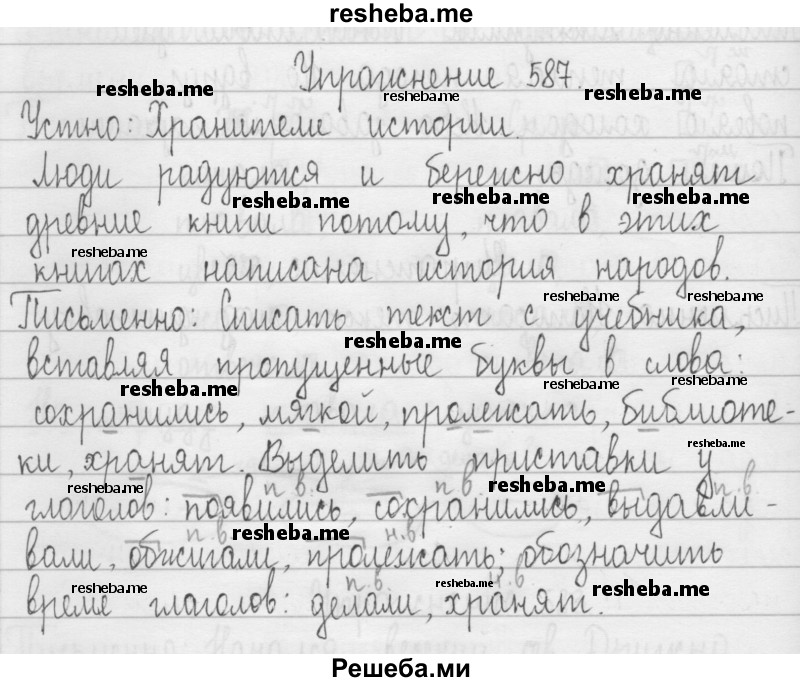 resheba.me
Упражнение 587.
resheba.me resheba.me resheba.me
Устно: Хранители истории.
Люди радуются и бережно хранят
resheba.me resheba.me resheba.me
древние книги потому, что в этих
resheba.me
книгах написана история народов.
resheba.me resheba.me
Письменно: Списать текст с учебника,
resheba.me
вставляя пропущенные буквы в слова:
resheba.me resheba.me resheba.me
сохранились, мягкой, пролежать, библиоте-
resheba.me
ки, хранят. Выделить приставки у
resheba.me п.в. п.в. resheba.me п.в.
глаголов: появились, сохранились, выдавли-
п.в. resheba.me н.в.
вали, обжигали, пролежать; обозначить
resheba.me п.в. resheba.me н.в. resheba.me
время глаголов: делали, хранят.
Решеба.ми